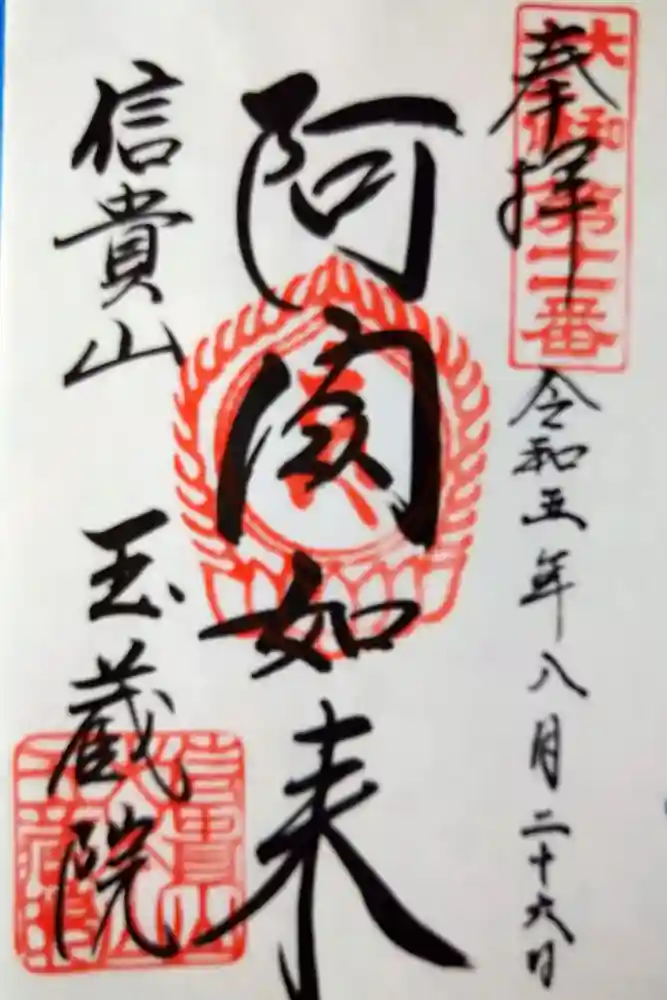 大和第十二番
奉拝
令和五年八月二十六日
阿閦如来
信貴山
玉蔵院